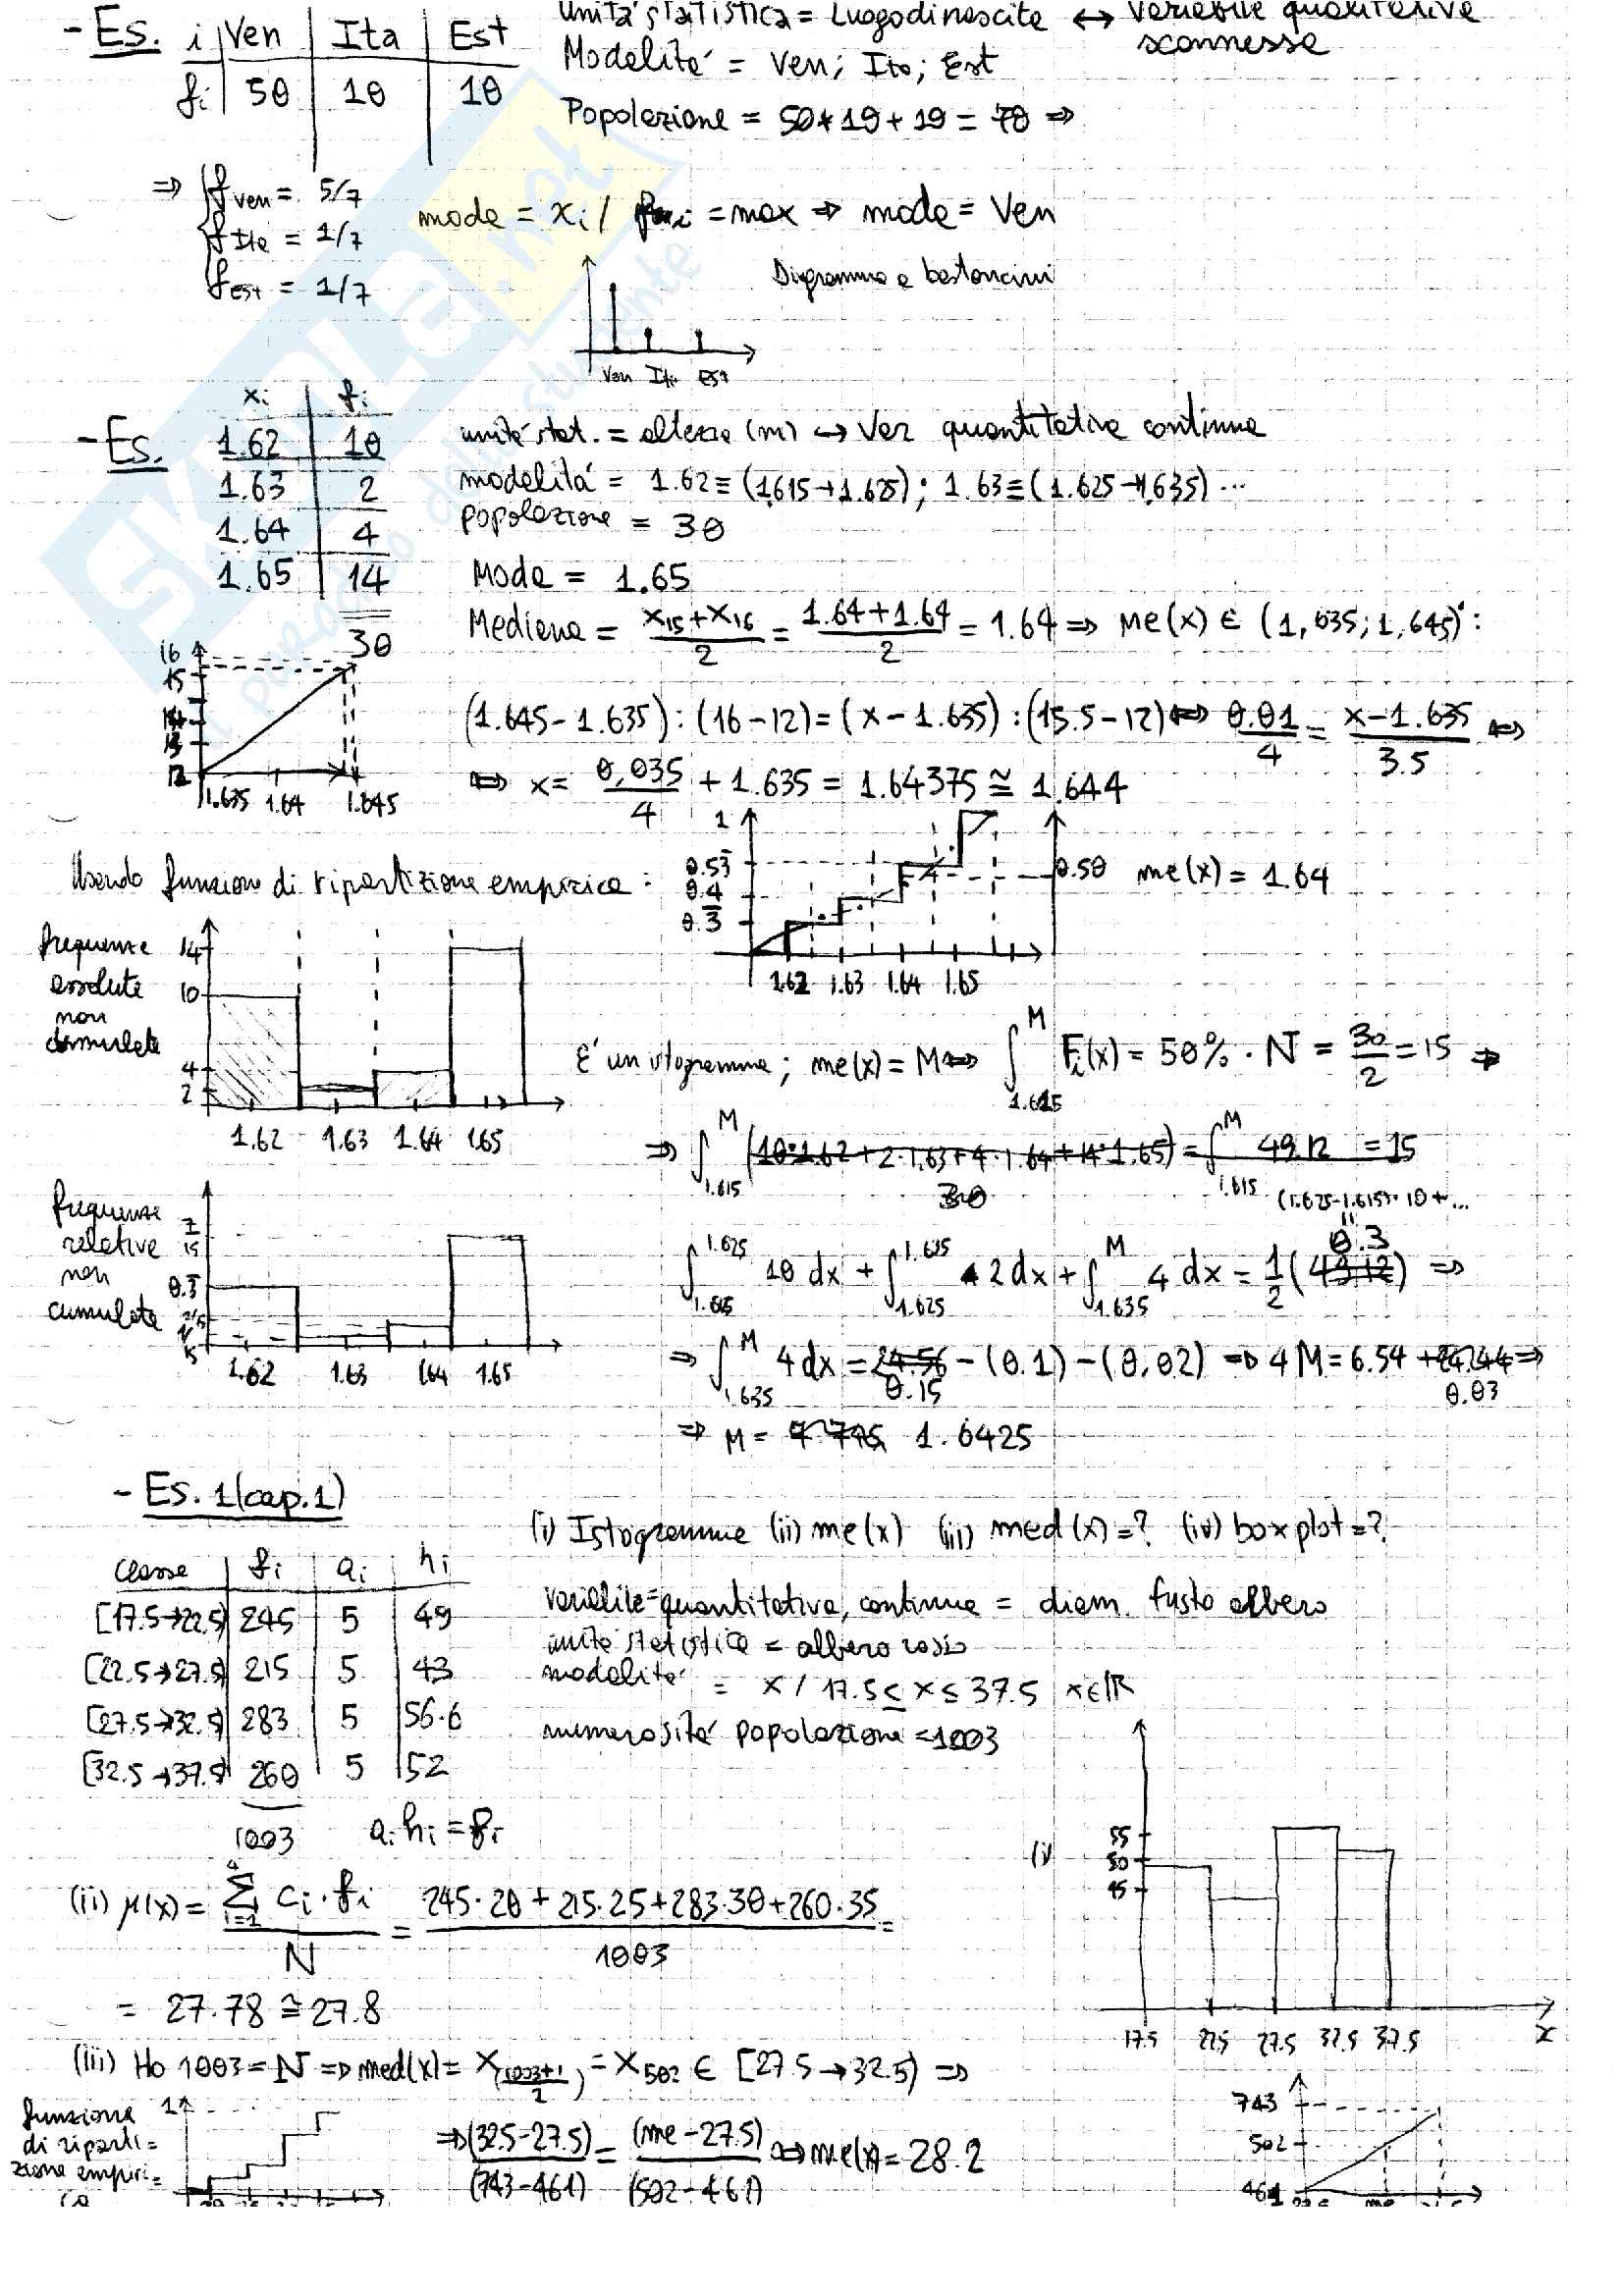 - Es. i | Ven | Ita | Est
fi | 50 | 10 | 10
Unità statistica = Luogo di nascita ↔ Variabile qualitativa sconnessa
Modalità = Ven; Ita; Est
Popolazione = 50+10+10 = 70 ⇒
⇒ { fVen = 5/7
fIta = 1/7
fEst = 1/7
moda = xi / fi = max ⇒ moda = Ven
Diagramma a bastoncini
Ven Ita Est
- Es.
xi | fi
1.62 | 10
1.63 | 2
1.64 | 4
1.65 | 14
30
unità stat. = altezza (m) ↔ Var quantitativa continua
modalità = 1.62 ≡ (1.615→1.625); 1.63 ≡ (1.625→1.635) ...
popolazione = 30
Moda = 1.65
Mediana = (x15+x16)/2 = (1.64+1.64)/2 = 1.64 ⇒ me(x) ∈ (1,635; 1,645):
16
15
14
13
12
1.635 1.64 1.645
(1.645-1.635) : (16-12) = (x-1.635) : (15.5-12) ⇔ 0.01/4 = (x-1.635)/3.5 ⇔
⇔ x = 0,035/4 + 1.635 = 1.64375 ≅ 1.644
Usando funzione di ripartizione empirica:
1
0.53
0.4
0.3
1.62 1.63 1.64 1.65
0.50 me(x) = 1.64
frequenze assolute non cumulate
14
10
4
2
1.62 1.63 1.64 1.65
E' un istogramma; me(x) = M ⇔ ∫_{1.615}^{M} Fi(x) = 50% · N = 30/2 = 15 ⇒
⇒ ∫_{1.615}^{M} (10·1.62+2·1.63+4·1.64+14·1.65)/30 = ∫_{1.615}^{M} 49.12 = 15
(1.625-1.615)·10+...
frequenze relative non cumulate
7/15
0.3
2/15
1/15
1.62 1.63 1.64 1.65
∫_{1.615}^{1.625} 10 dx + ∫_{1.625}^{1.635} 2 dx + ∫_{1.635}^{M} 4 dx = 1/2 (49.12) 0.3 ⇒
⇒ ∫_{1.635}^{M} 4 dx = 24.56 0.15 - (0.1) - (0,02) ⇒ 4M = 6.54 + 0.03 ⇒
⇒ M = 1.6425
- Es. 1 (cap.1)
(i) Istogramma (ii) me(x) (iii) med(x)=? (iv) box plot=?
classe | fi | ai | hi
[17.5→22.5) | 245 | 5 | 49
[22.5→27.5) | 215 | 5 | 43
[27.5→32.5) | 283 | 5 | 56.6
[32.5→37.5) | 260 | 5 | 52
1003
ai hi = fi
variabile = quantitativa, continua = diam. fusto albero
unità statistica = albero
modalità = x / 17.5 ≤ x ≤ 37.5 x∈ℝ
numerosità popolazione = 1003
(i)
55
50
45
17.5 22.5 27.5 32.5 37.5 x
(ii) μ(x) = Σ_{i=1}^{4} ci · fi / N = (245·20 + 215·25 + 283·30 + 260·35)/1003 =
= 27.78 ≅ 27.8
(iii) Ho 1003 = N ⇒ med(x) = x((1003+1)/2) = x502 ∈ [27.5→32.5) ⇒
funzione di riparti=
zione empiri=
ca
1
⇒ (32.5-27.5)/(743-461) = (me-27.5)/(502-461) ⇔ me(x) = 28.2
743
502
461
me